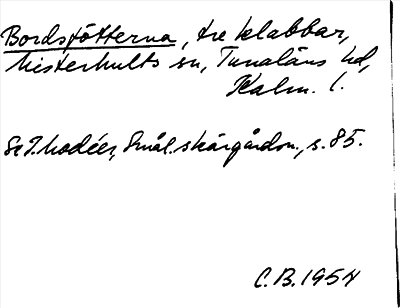 Bordsfötterna, tre klabbar,
Misterhults sn, Tunaläns hd,
Kalm. l.
Se I. Modéer, Smål. skärgårdsn., s. 85.
C.B. 1954